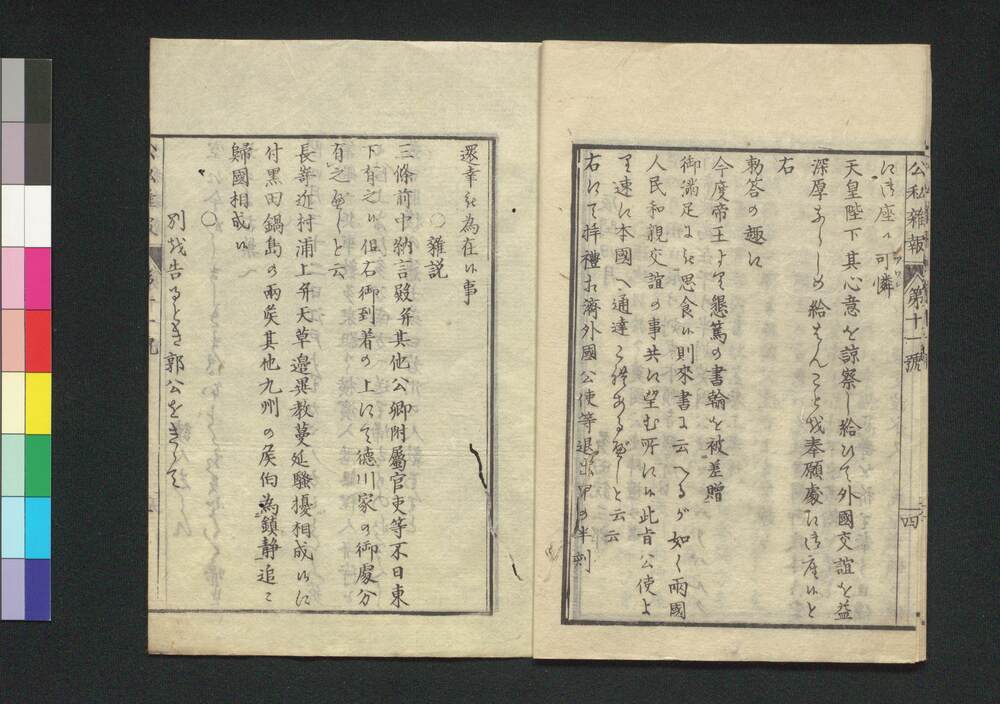 公私雜報 第十一號 四
に御座候可憐
天皇陛下其心意を諒察し給ひて外國交誼を益
深厚ならしめ給はんことを奉願處に御座候と
右
勅答の趣に
今度帝王より懇篤の書翰を被差贈
御滿足に被思食候則來書に云へるが如く兩國
人民和親交誼の事共に望む所に候此旨公使よ
り速に本國へ通達これあるべしと云云
右にて拜禮相濟外國公使等退出早の半刻
還幸被為在候事
〇雜説
三條前中納言殿并其他公卿附屬官吏等不日東
下有之候但右御到着の上にて徳川家の御處分
有之べしと云
長嵜近村浦上并天草邉異教蔓延騷擾相成候に
付黒田鍋島の兩矦其他九州の矦伯為鎮静追々
歸國相成候
〇
別を告るとき郭公をきゝて